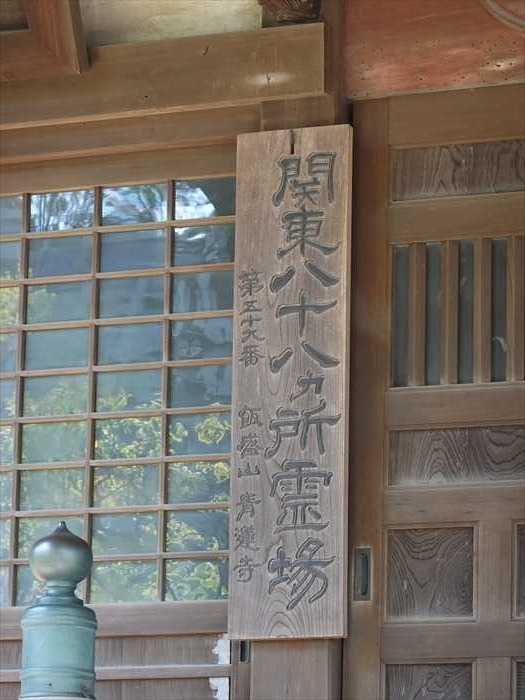 関東八十八ヵ所霊場
第五十八番 飯盛山 青蓮寺